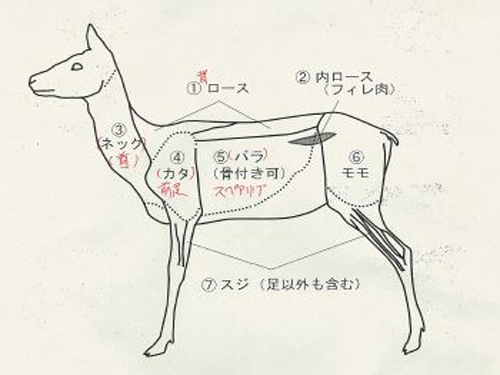 背
① ロース
② 内ロース
（フィレ肉）
③
（ネック）
（首）
④
（カタ）
前足
⑤（バラ）
（骨付き可）
スペアリブ
⑥
モモ
⑦ スジ（足以外も含む）